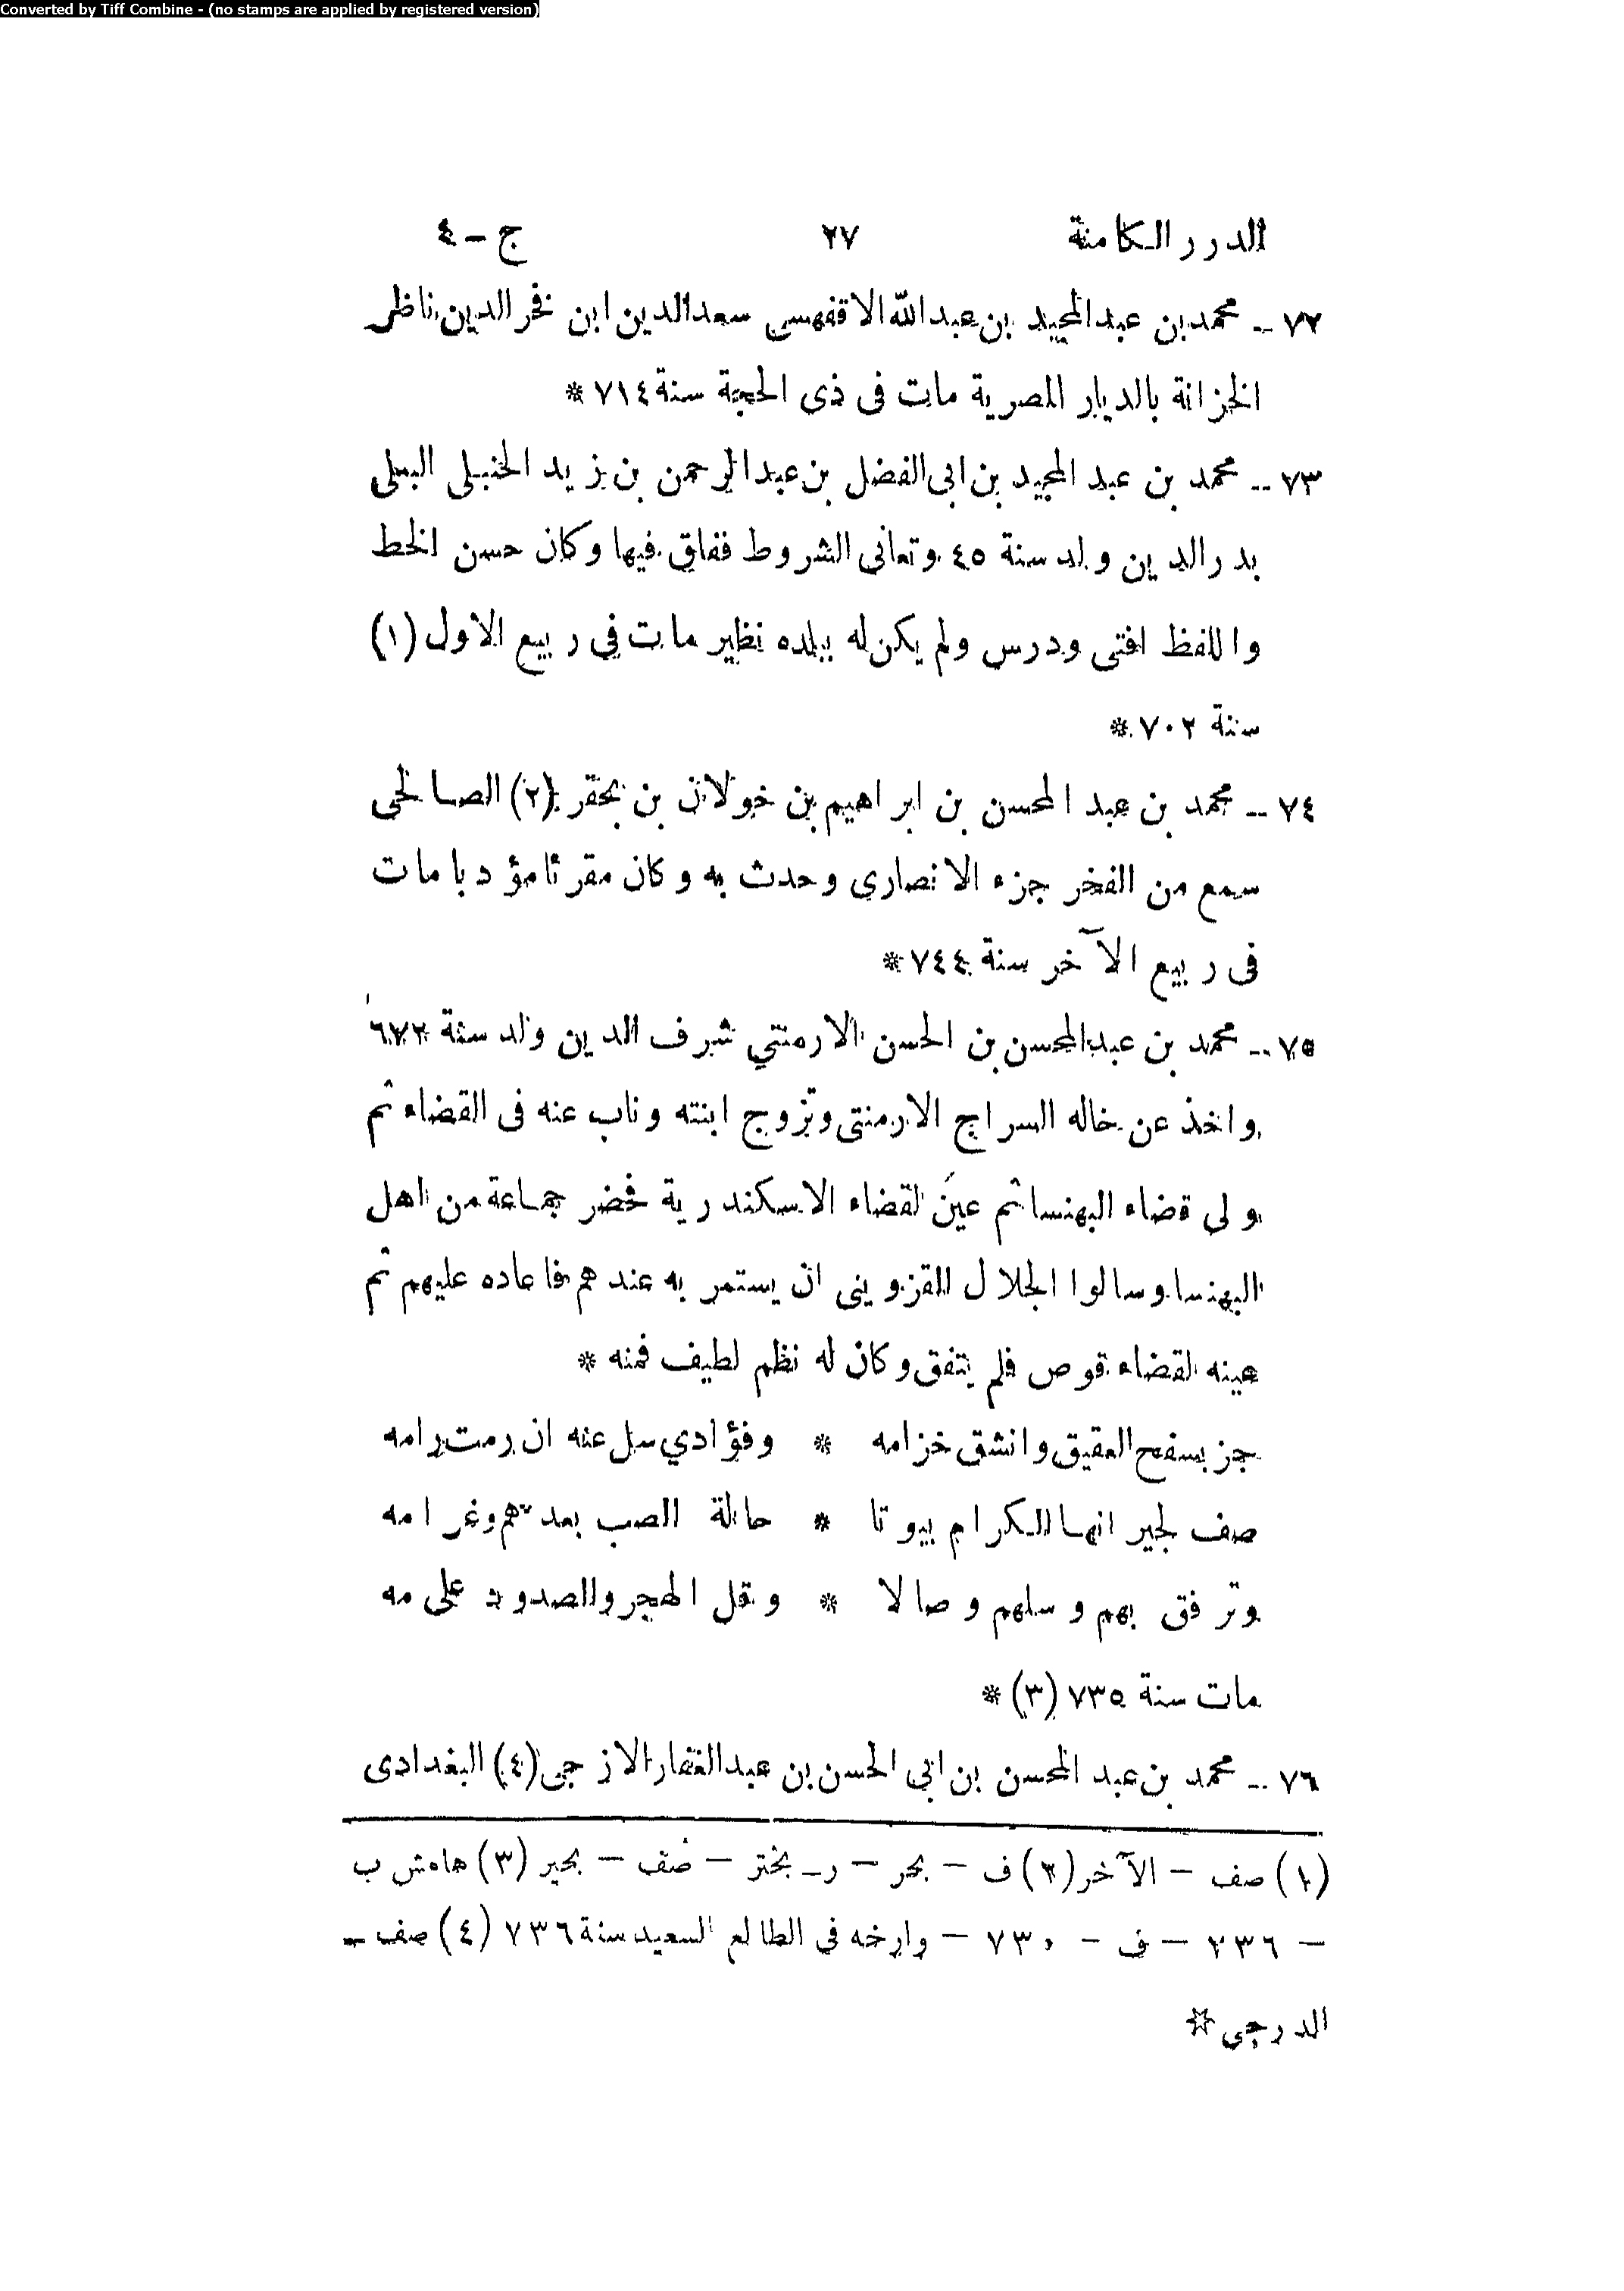 Converted by Tiff Combine - (no stamps are applied by registered version)
الدرر الكامنة ٢٧ ج - ٤
٧٢ - محمد بن عبد المجيد بن عبد الله الاقفهسى سعد الدين ابن فخر الدين ناظر
الخزانة بالديار المصرية مات فى ذى الحجة سنة ٧١٤ *
٧٣ - محمد بن عبد المجيد بن ابى الفضل بن عبد الرحمن بن زيد الحنبلى البعلى
بدر الدين ولد سنة ٤٥ وتعانى الشروط ففاق فيها وكان حسن الخط
واللفظ افتى ودرس ولم يكن له ببلده نظير مات فى ربيع الاول (١)
سنة ٧٠٢ *
٧٤ - محمد بن عبد المحسن بن ابراهيم بن خولان بن بحقر (٢) الصالحى
سمع من الفخر جزء الانصارى وحدث به وكان مقرئا مؤدبا مات
فى ربيع الآخر سنة ٧٤٤ *
٧٥ - محمد بن عبد المحسن بن الحسن الارمنتي شرف الدين ولد سنة ٦٧٢
واخذ عن خاله السراج الارمنتى وتزوج ابنته وناب عنه فى القضاء ثم
ولى قضاء البهنسا ثم عين لقضاء الاسكندرية فحضر جماعة من اهل
البهنسا وسالوا الجلال القزوينى ان يستمر به عندهم فاعاده عليهم ثم
عينه لقضاء قوص فلم يتفق وكان له نظم لطيف فمنه *
جز بسفح العقيق وانشق خزامه * وفؤادي سل عنه ان رمت رامه
صف لجيرانها الكرام بيوتا * حالة الصب بعدهم وغرامه
وترفق بهم وسلهم وصالا * وقل الهجر والصدود على مه
مات سنة ٧٣٥ (٣) *
٧٦ - محمد بن عبد المحسن بن ابي الحسن بن عبد الغفار الازجى (٤) البغدادى
(١) صف - الآخر (٢) ف - بحر - ر - بختر - صف - بحير (٣) هامش ب
- ٧٣٦ - ف - ٧٣٠ - وارخه فى الطالع السعيد سنة ٧٣٦ (٤) صف -
الدرجى *